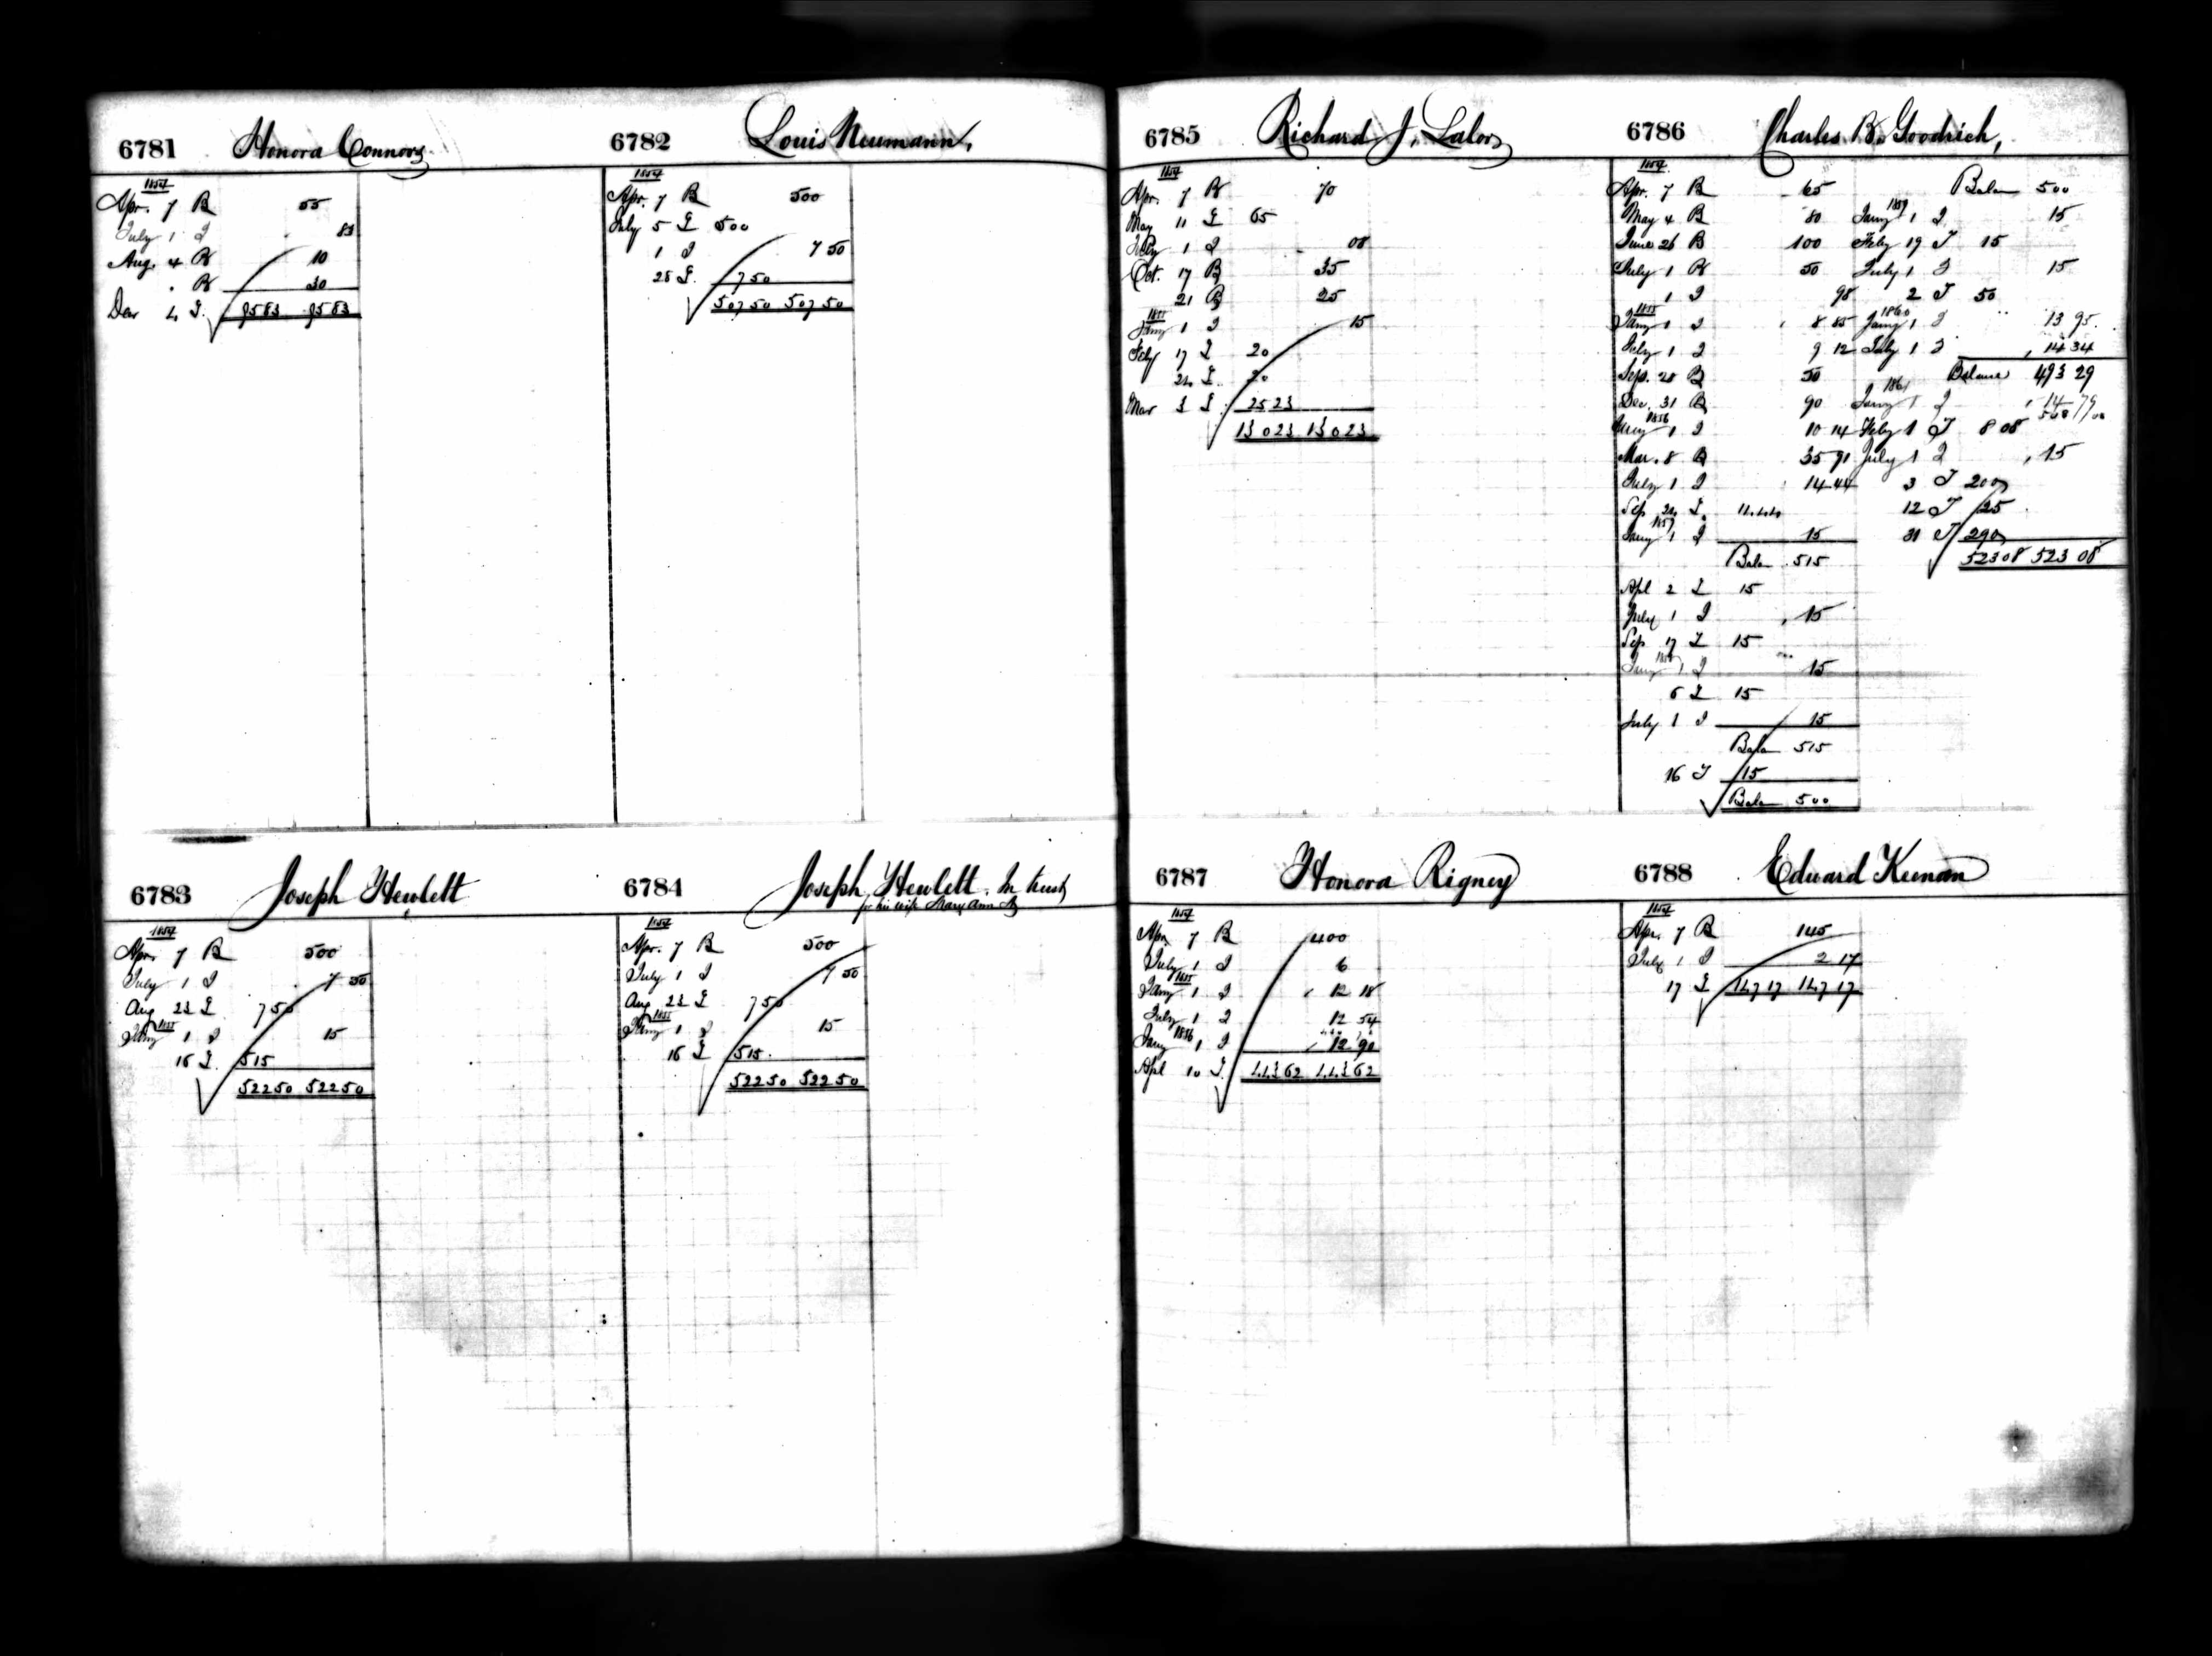 6781 Honora Connors
1854
Apr. 7 B 55
July 1 I 83
Aug. 4 B 10
" B 30
Dec 4 I 95 83 95 83
6782 Louis Neumann,
1854
Apr. 7 B 500
July 5 I 500
1 I 7 50
28 I 7 50
507 50 507 50
6783 Joseph Hewlett
1854
Apr. 7 B 500
July 1 I 7 50
Aug 23 I 7 50
1855
Jany 1 I 15
16 I 515
522 50 522 50
6784 Joseph Hewlett. In trust
for his wife Mary Ann
1854
Apr. 7 B 500
July 1 I 7 50
Aug 23 I 7 50
1855
Jany 1 I 15
16 I 515
522 50 522 50
6785 Richard J. Lalor
1854
Apr. 7 B 70
May 11 I 65
July 1 I 08
Oct. 17 B 35
21 B 25
1855
Jany 1 I 15
Feby 17 I 20
24 I 20
Mar 3 I 25 23
130 23 130 23
6786 Charles B. Goodrich,
1854
Apr. 7 B 65
May 4 B 80
June 26 B 100
July 1 B 50
1 I 98
1855
Jany 1 I 8 85
July 1 I 9 12
Sep. 28 B 50
Dec. 31 B 90
1856
Jany 1 I 10 14
Mar. 8 B 35 91
July 1 I 14 44
Sep 24 I 14 44
1857
Jany 1 I 15
Balan 515
Apl 2 I 15
July 1 I 15
Sep 17 I 15
1858
Jany 1 I 15
6 I 15
July 1 I 15
Balan 515
16 I 15
Balan 500
Balan 500
1859
Jany 1 I 15
Feby 19 I 15
July 1 I 15
2 I 50
1860
Jany 1 I 13 95
July 1 I 14 34
Balance 493 29
1861
Jany 1 I 14 79
508
Feby 1 I 8 08
July 1 I 15
3 I 200
12 I 25
31 I 290
523 08 523 08
6787 Honora Rigney
1854
Apr. 7 B 400
July 1 I 6
1855
Jany 1 I 12 18
July 1 I 12 54
1856
Jany 1 I 12 90
Apl 10 I 443 62 443 62
6788 Edward Keenan
1854
Apr. 7 B 145
July 1 I 2 17
17 I 147 17 147 17